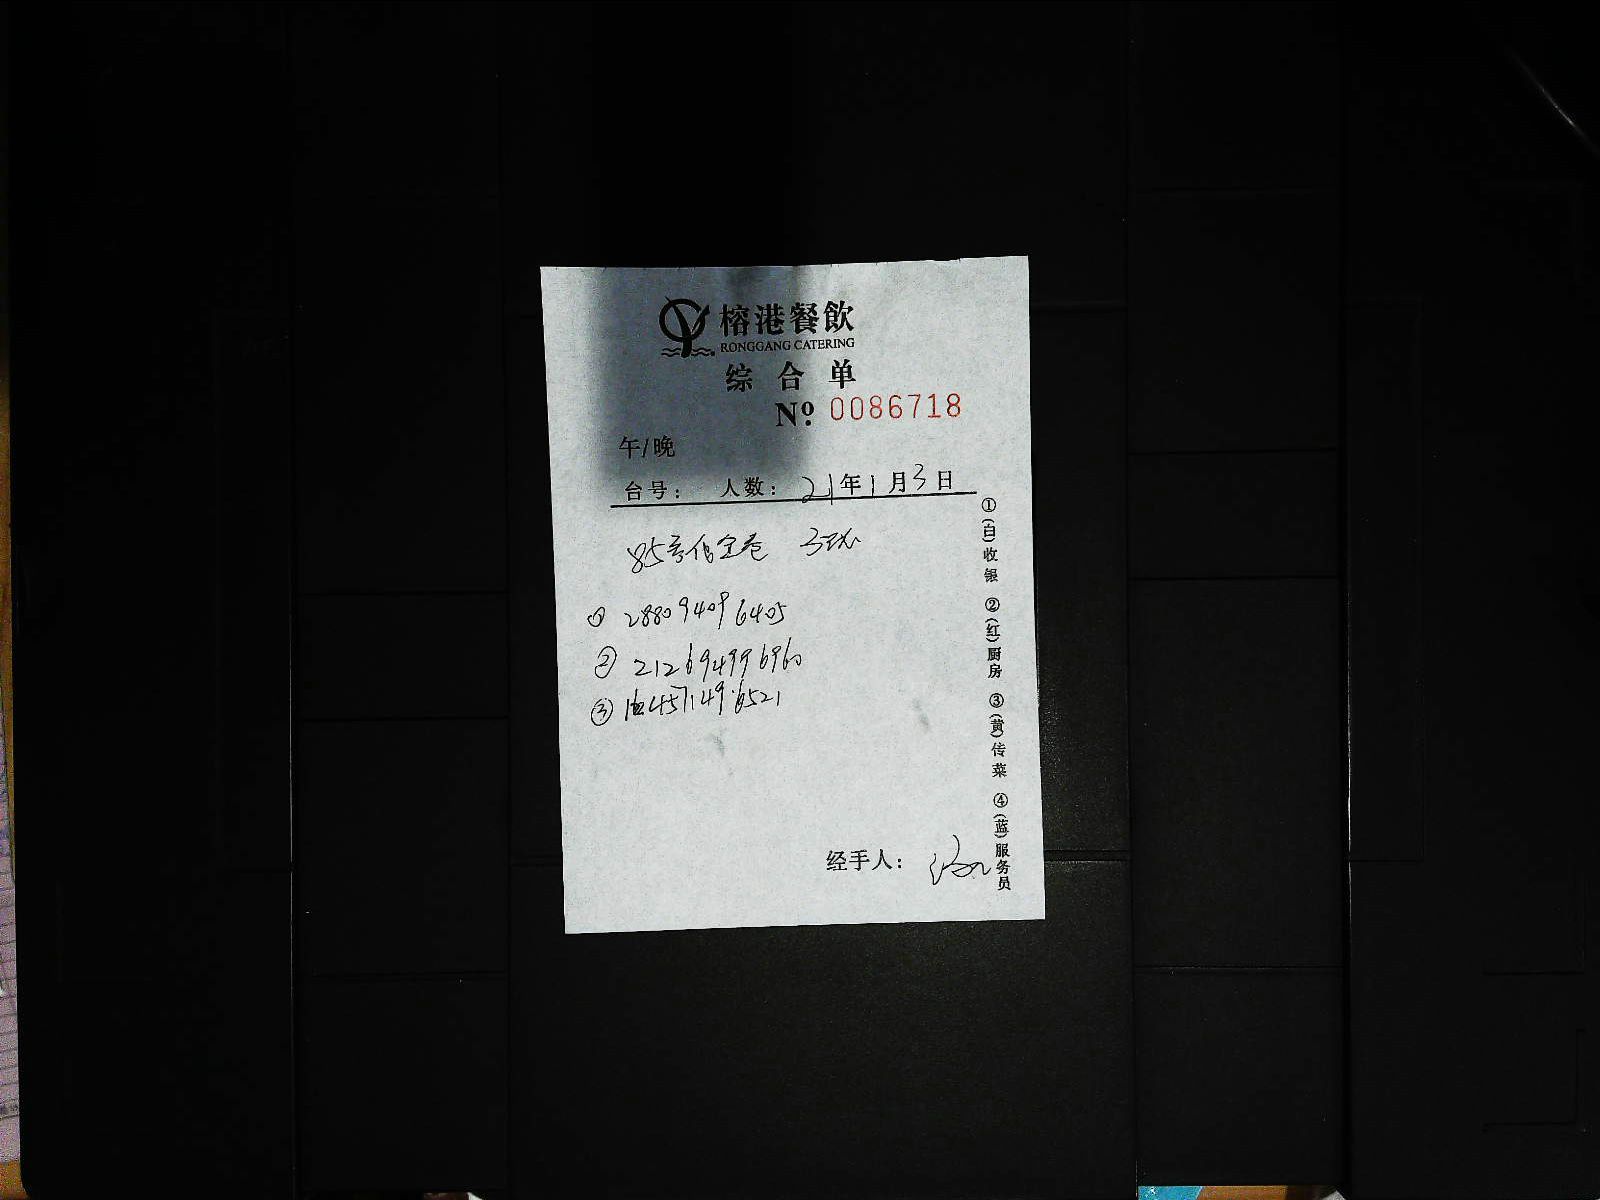 榕港餐飲
RONGGANG CATERING
综合单
Nº: 0086718
午/晚
台号: 人数: 21年1月3日
85号
① 288094096405
② 212694996960
③
经手人:
①(白)收银 ②(红)厨房 ③(黄)传菜 ④(蓝)服务员